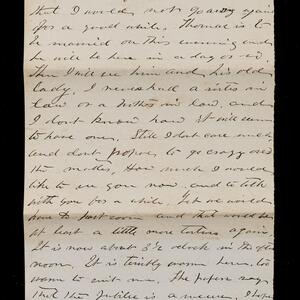 that I would not go away again
for a good while. Thomas is to
be married on this evening and
he will be here in a day or so.
Then I will see him and his old
lady. I never had a sister in
law or a brother in law, and
I dont know how it will seem
to have one. Still I dont care much
and dont propose to go crazy over
the matter. How much I would
like to see you now and to talk
with you for a while. Yet we would
have to part soon and that would be
at least a little more torture again.
It is now about 3½ o'clock in the after
noon. It is terribly warm here, too
warm to suit me. The papers say
that the Jubilee is a I hope